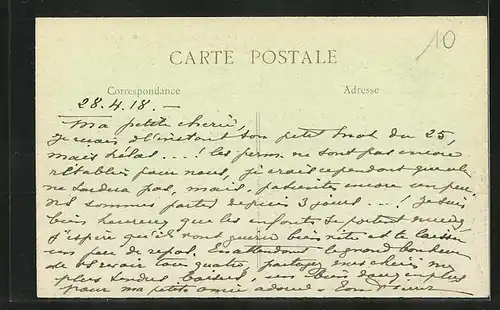 10
CARTE POSTALE
Correspondance
Adresse
28.4.18. —
Ma petite cherie,
Je reçois à l'instant ton petit mot du 25,
mais hélas...! les perm. ne sont pas encore
rétablies pour nous, je crois cependant que cela
ne tardera pas, mais patiente encore un peu,
ns sommes partis depuis 3 jours...! Je suis
bien heureux que les enfants se portent mieux,
j'espère qu'ils vont guérir bien vite et te laisser
un peu de repos. En attendant le grand bonheur
de vs revoir tous quatre, partagez mes chéris mes
plus tendres baisers un bien doux en plus
pour ma petite amie adorée.